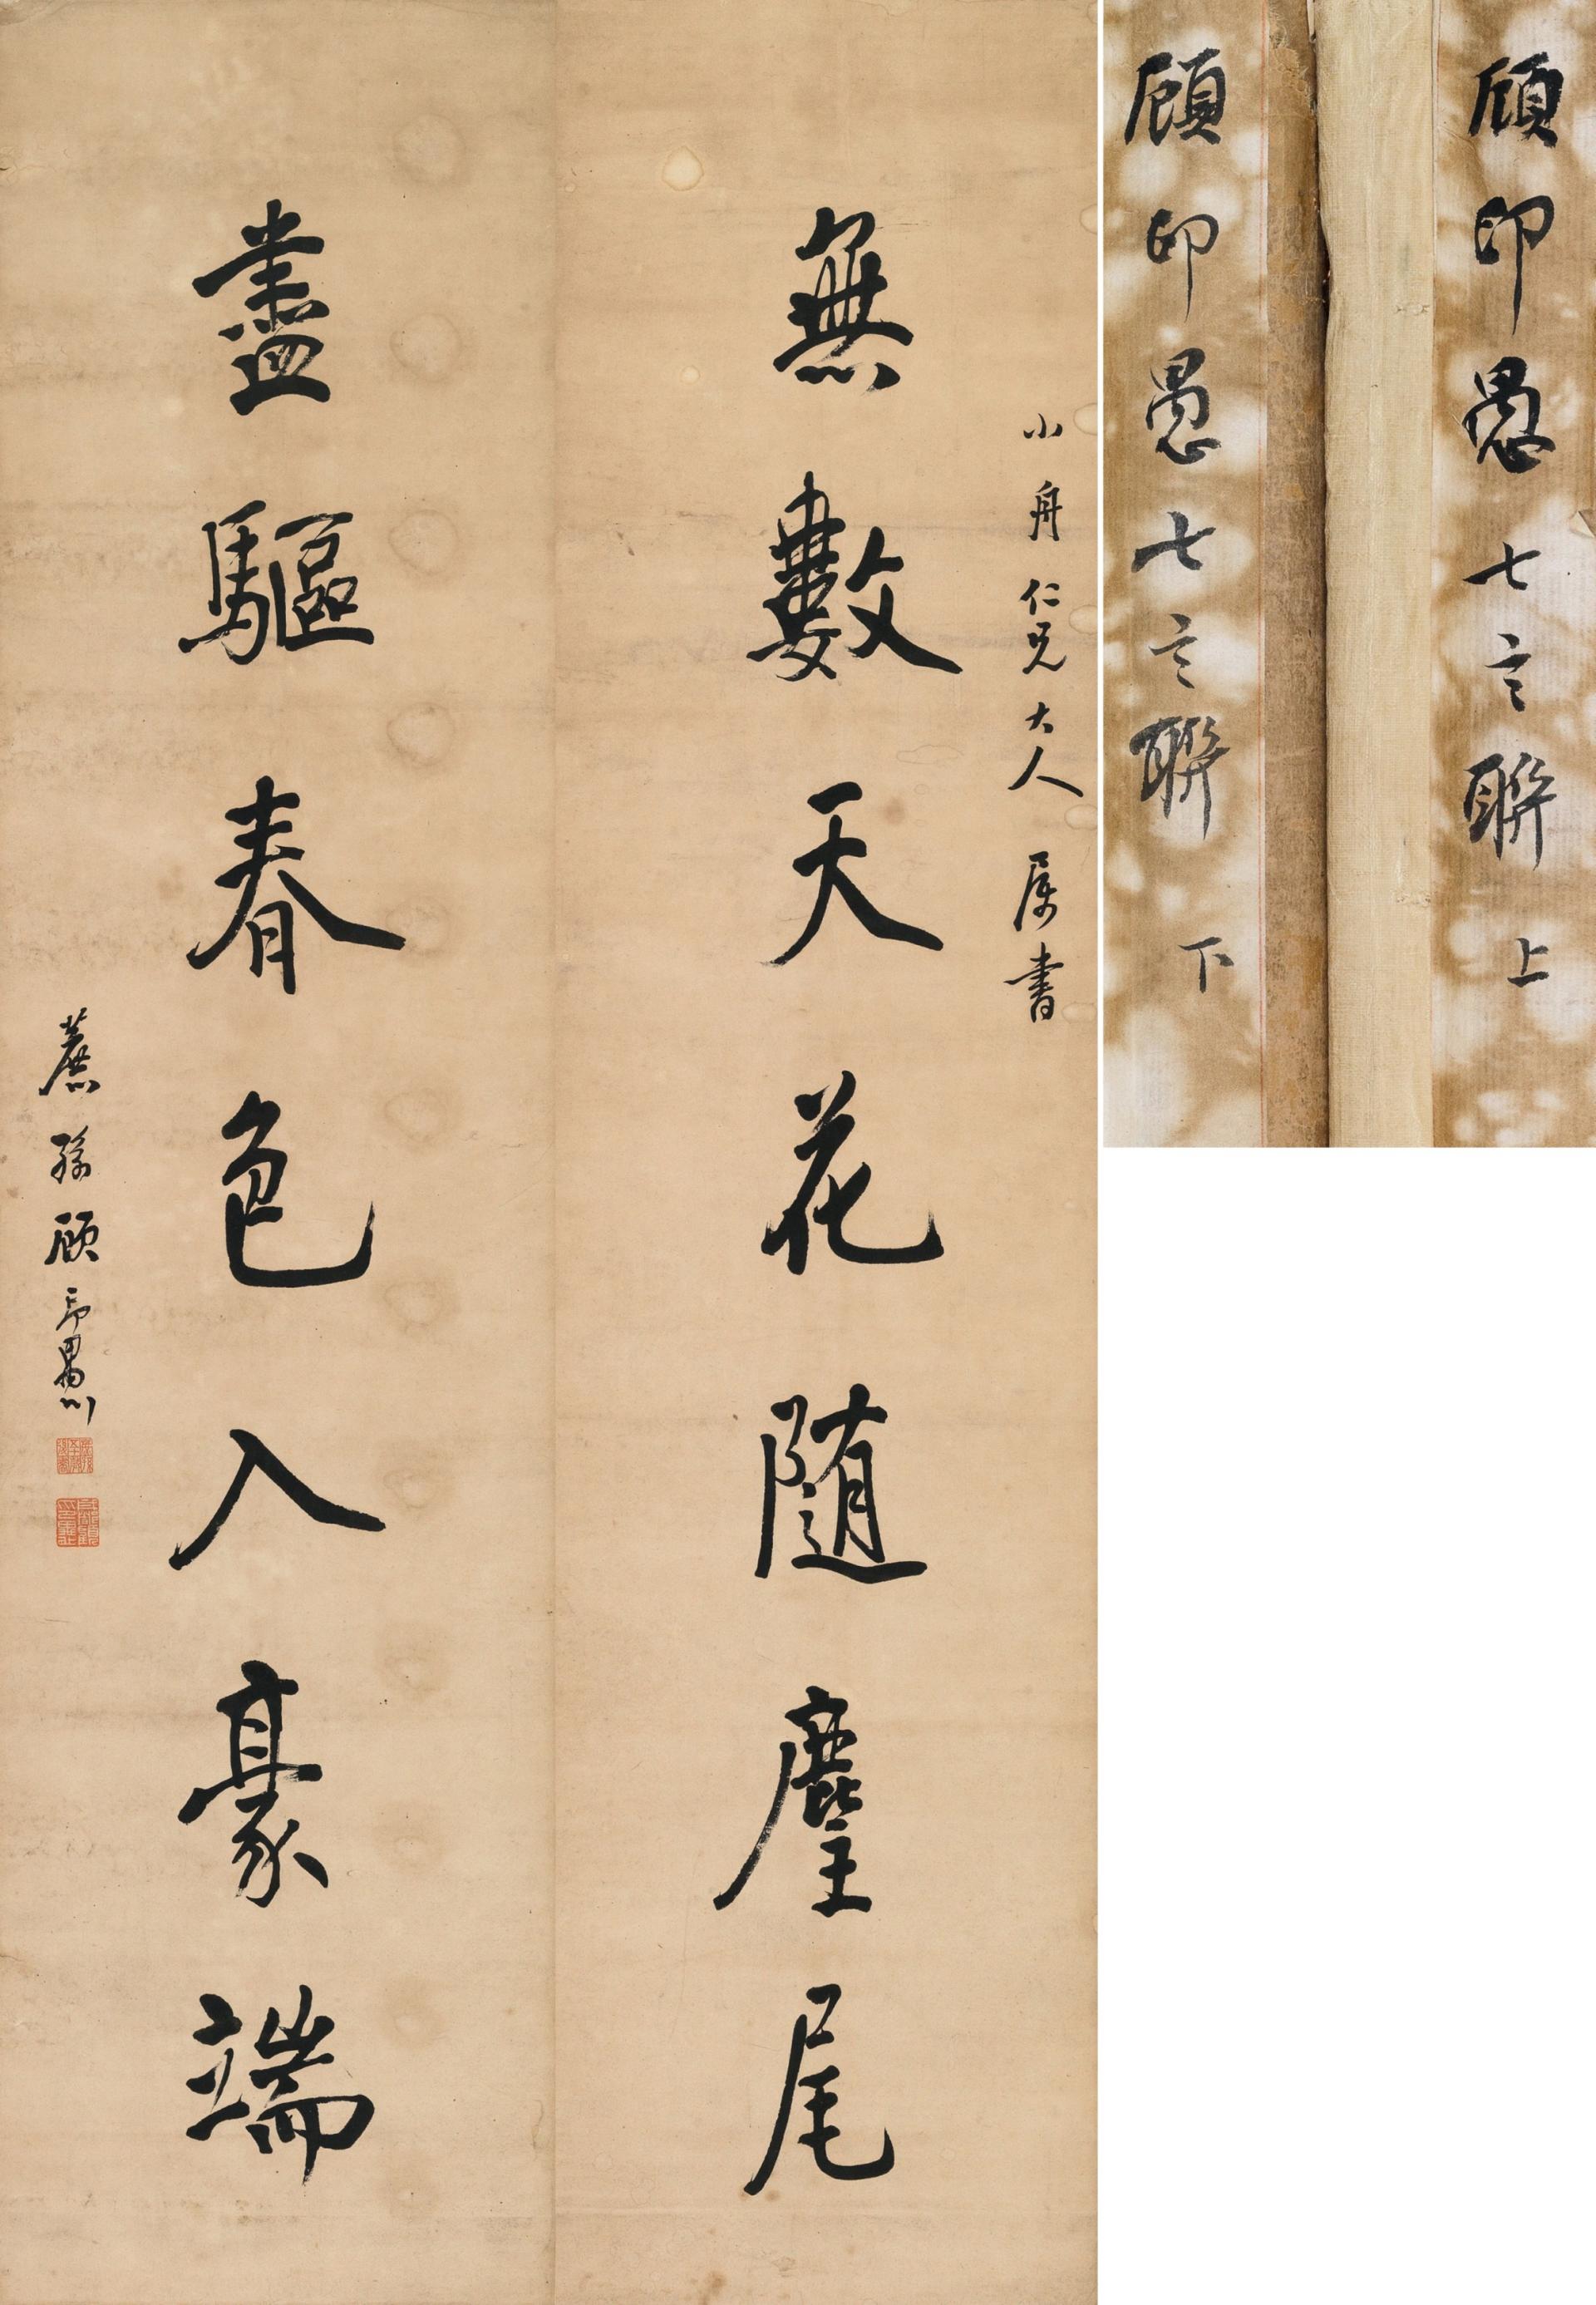 無數天花随麈尾
小舟仁兄大人属書
盡驅春色入豪端
蔗孫顧印愚
顧印愚七言聯 上
顧印愚七言聯 下